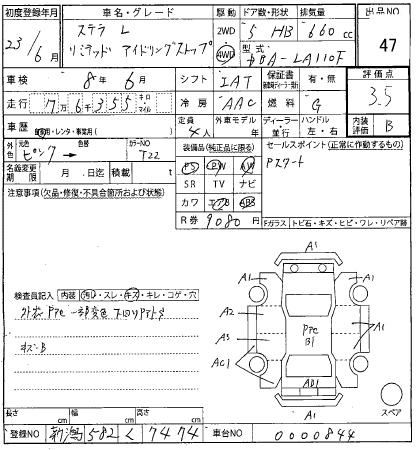 初度登録年月 車名・グレード 駆動 ドア数・形状 排気量 出品NO
23/6月 ステラ L 2WD 5 HB 660cc 47
リミテッド アイドリングストップ 4WD 型式 DBA-LA110F
車検 8年 6月 シフト IAT 保証書 有・無 評価点
走行 7万6千355 キロ マイル 冷房 AAC 燃料 G 3.5
車歴 自家用・レンタ・事業用( ) 定員 4人 外車モデル 年 ディーラー・並行 ハンドル 左・右 内装評価 B
外色 元色 ピンク → 色替 カラーNO T22
装備品(純正品に限る) セールスポイント(正常に作動するもの)
PS PW AW Pスタート
名義変更期限 月 日迄 積載 t SR TV ナビ
注意事項(欠品・修復・不具合箇所および状態) カワ エアB ABS
R券 9080円 Fガラス トビ石・キズ・ヒビ・ワレ・リペア跡
A1
A1 A1
検査員記入 内装 汚れ・スレ・キズ・キレ・コゲ・穴
A2
外装 Pアセ 一部変色
Pアセ
B1
A3 A1
キズ・B
AC1
AD1
A1
スペア
長さ cm 幅 cm 高さ cm
登録NO 新潟 582 く 7474 車台NO 0000844